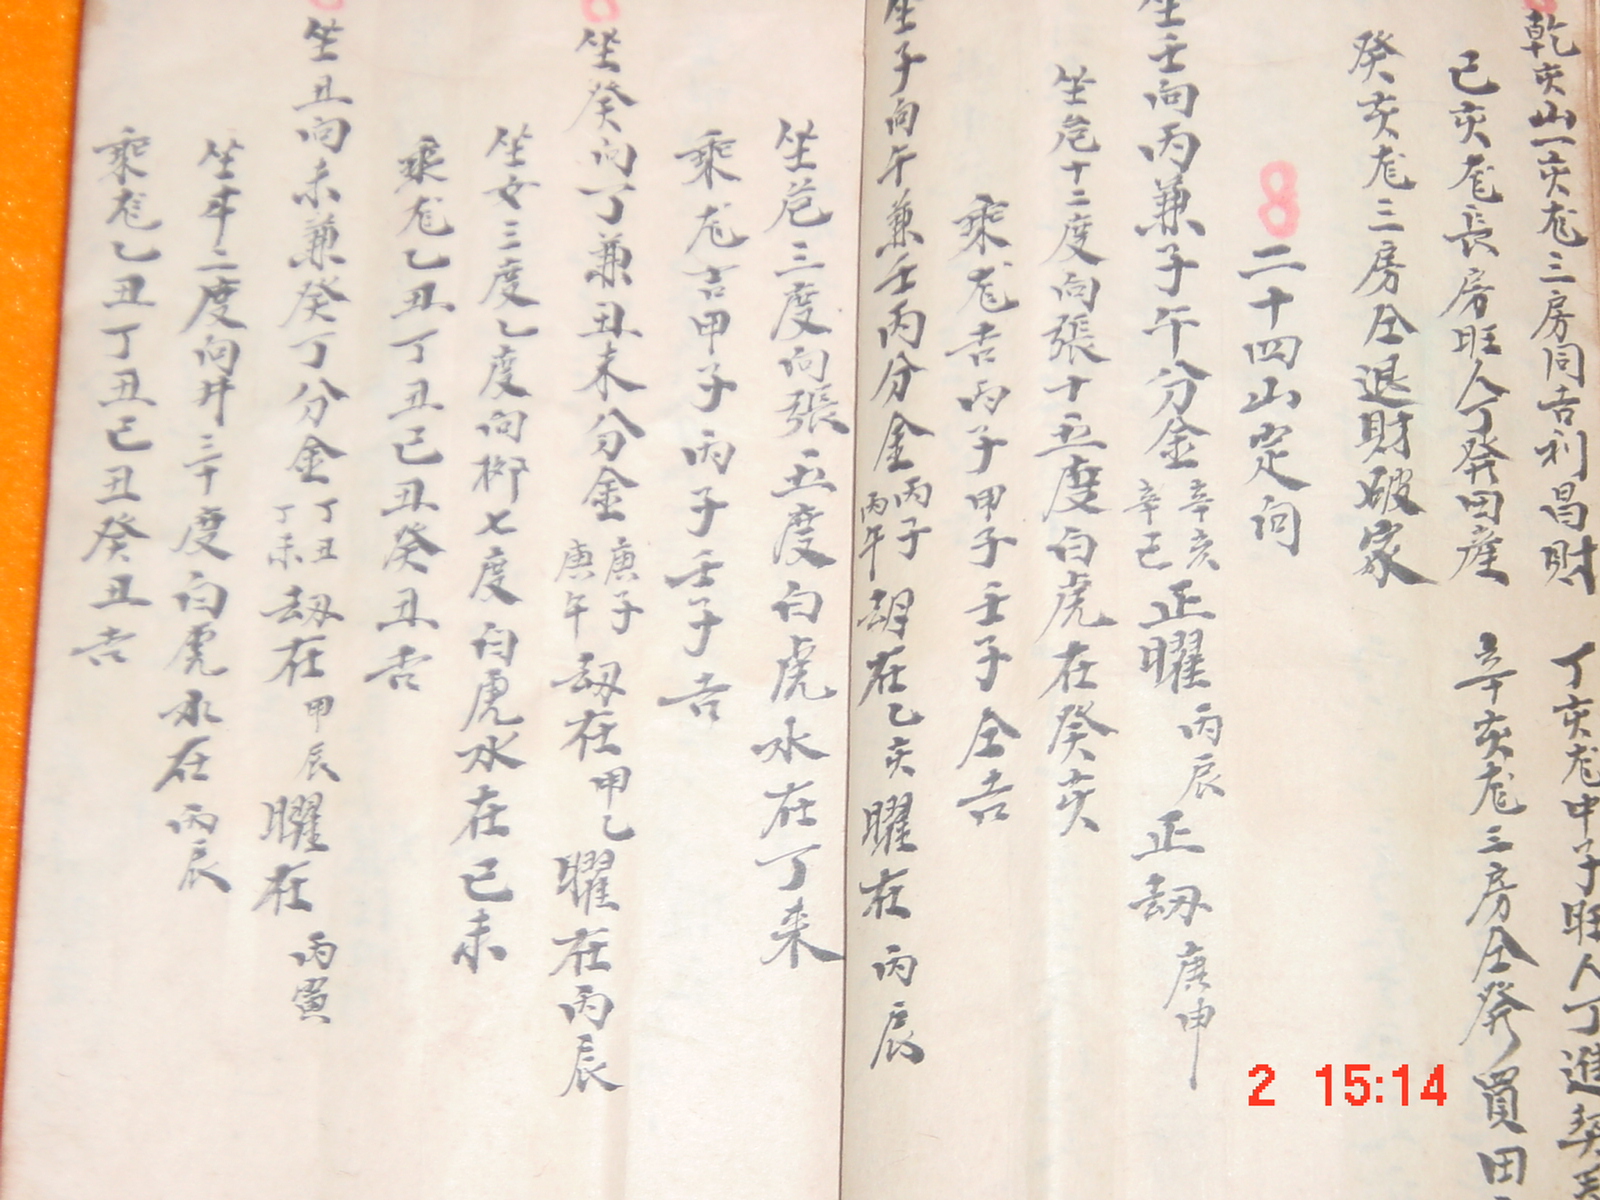 乾亥山一亥龙三房同吉利昌財 丁亥龙中子旺人丁進契
己亥龙長房旺人丁発田産 辛亥龙三房仝発買田
癸亥龙三房仝退財破家
二十四山定向
坐壬向丙兼子午分金辛亥辛巳正曜丙辰正刼庚申
坐危十二度向張十五度白虎在癸亥
乘龙吉丙子甲子壬子仝吉
坐子向午兼壬丙分金丙子丙午刼在乙亥曜在丙辰
坐危三度向張五度白虎水在丁来
乘龙吉甲子丙子壬子吉
坐癸向丁兼丑未分金庚子庚午刼在甲乙曜在丙辰
坐女三度乙度向柳七度白虎水在己未
乘龙乙丑丁丑己丑癸丑吉
坐丑向未兼癸丁分金丁丑丁未刼在甲辰曜在丙寅
坐牛二度向井三十度白虎水在丙辰
乘龙乙丑丁丑己丑癸丑吉
2 15:14